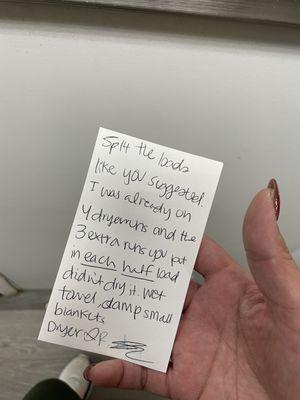 Split the loads
like you suggested.
I was already on
4 dryer runs and the
3 extra runs you put
in each half load
didn't dry it. Wet
towel, damp small
blankets
Dryer